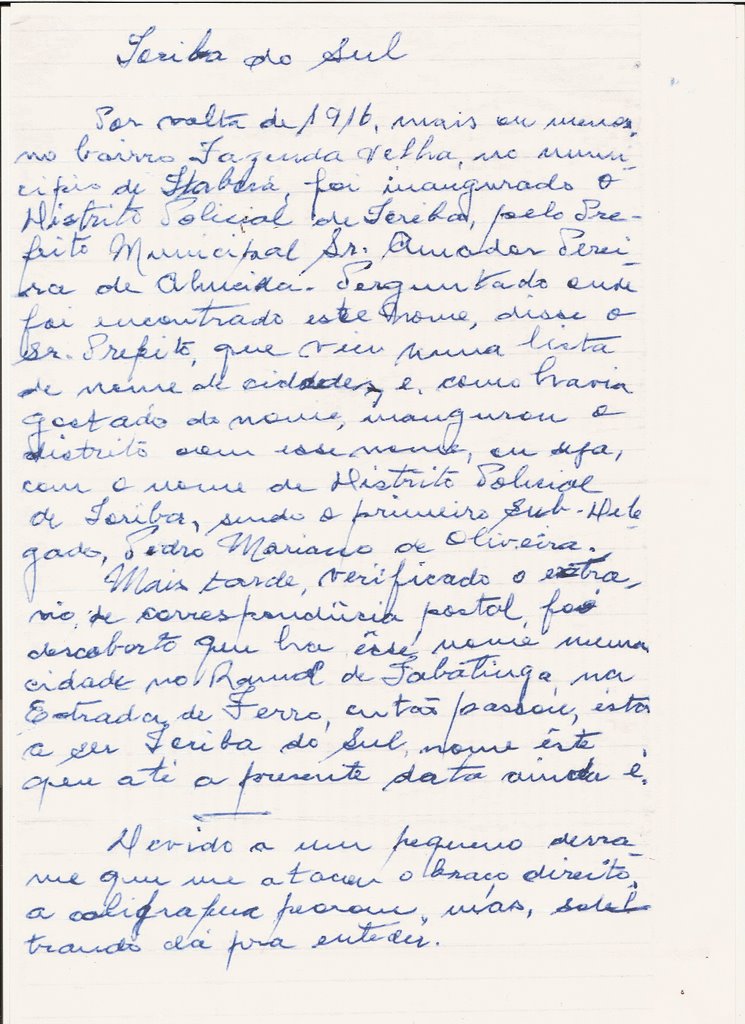 Toriba do Sul
Por volta de 1916, mais ou menos,
no bairro Fazenda Velha, no muni-
cipio de Itaberá, foi inaugurado o
Distrito Policial de Toriba, pelo Pre-
feito Municipal Sr. Amador Perei-
ra de Almeida. Perguntado onde
foi encontrado este nome, disse o
Sr. Prefeito, que viu numa lista
de nome de cidades, e, como havia
gostado do nome, inaugurou o
distrito com esse nome, ou seja,
com o nome de Distrito Policial
de Toriba, sendo o primeiro Sub-Dele
gado, Pedro Mariano de Oliveira.
Mais tarde, verificado o extra-
vio, de correspondência postal, foi
descoberto que ha êsse, nome numa
cidade no Ramal de Tabatinga, na
Estrada, de Ferro, então passou, esta
a ser Toriba do Sul, nome êste
que até a presente data ainda é.
Devido a um pequeno derra-
me que me atacou o braço direito,
a caligrafia peorou, mas, solet
trando dá pra enteder.